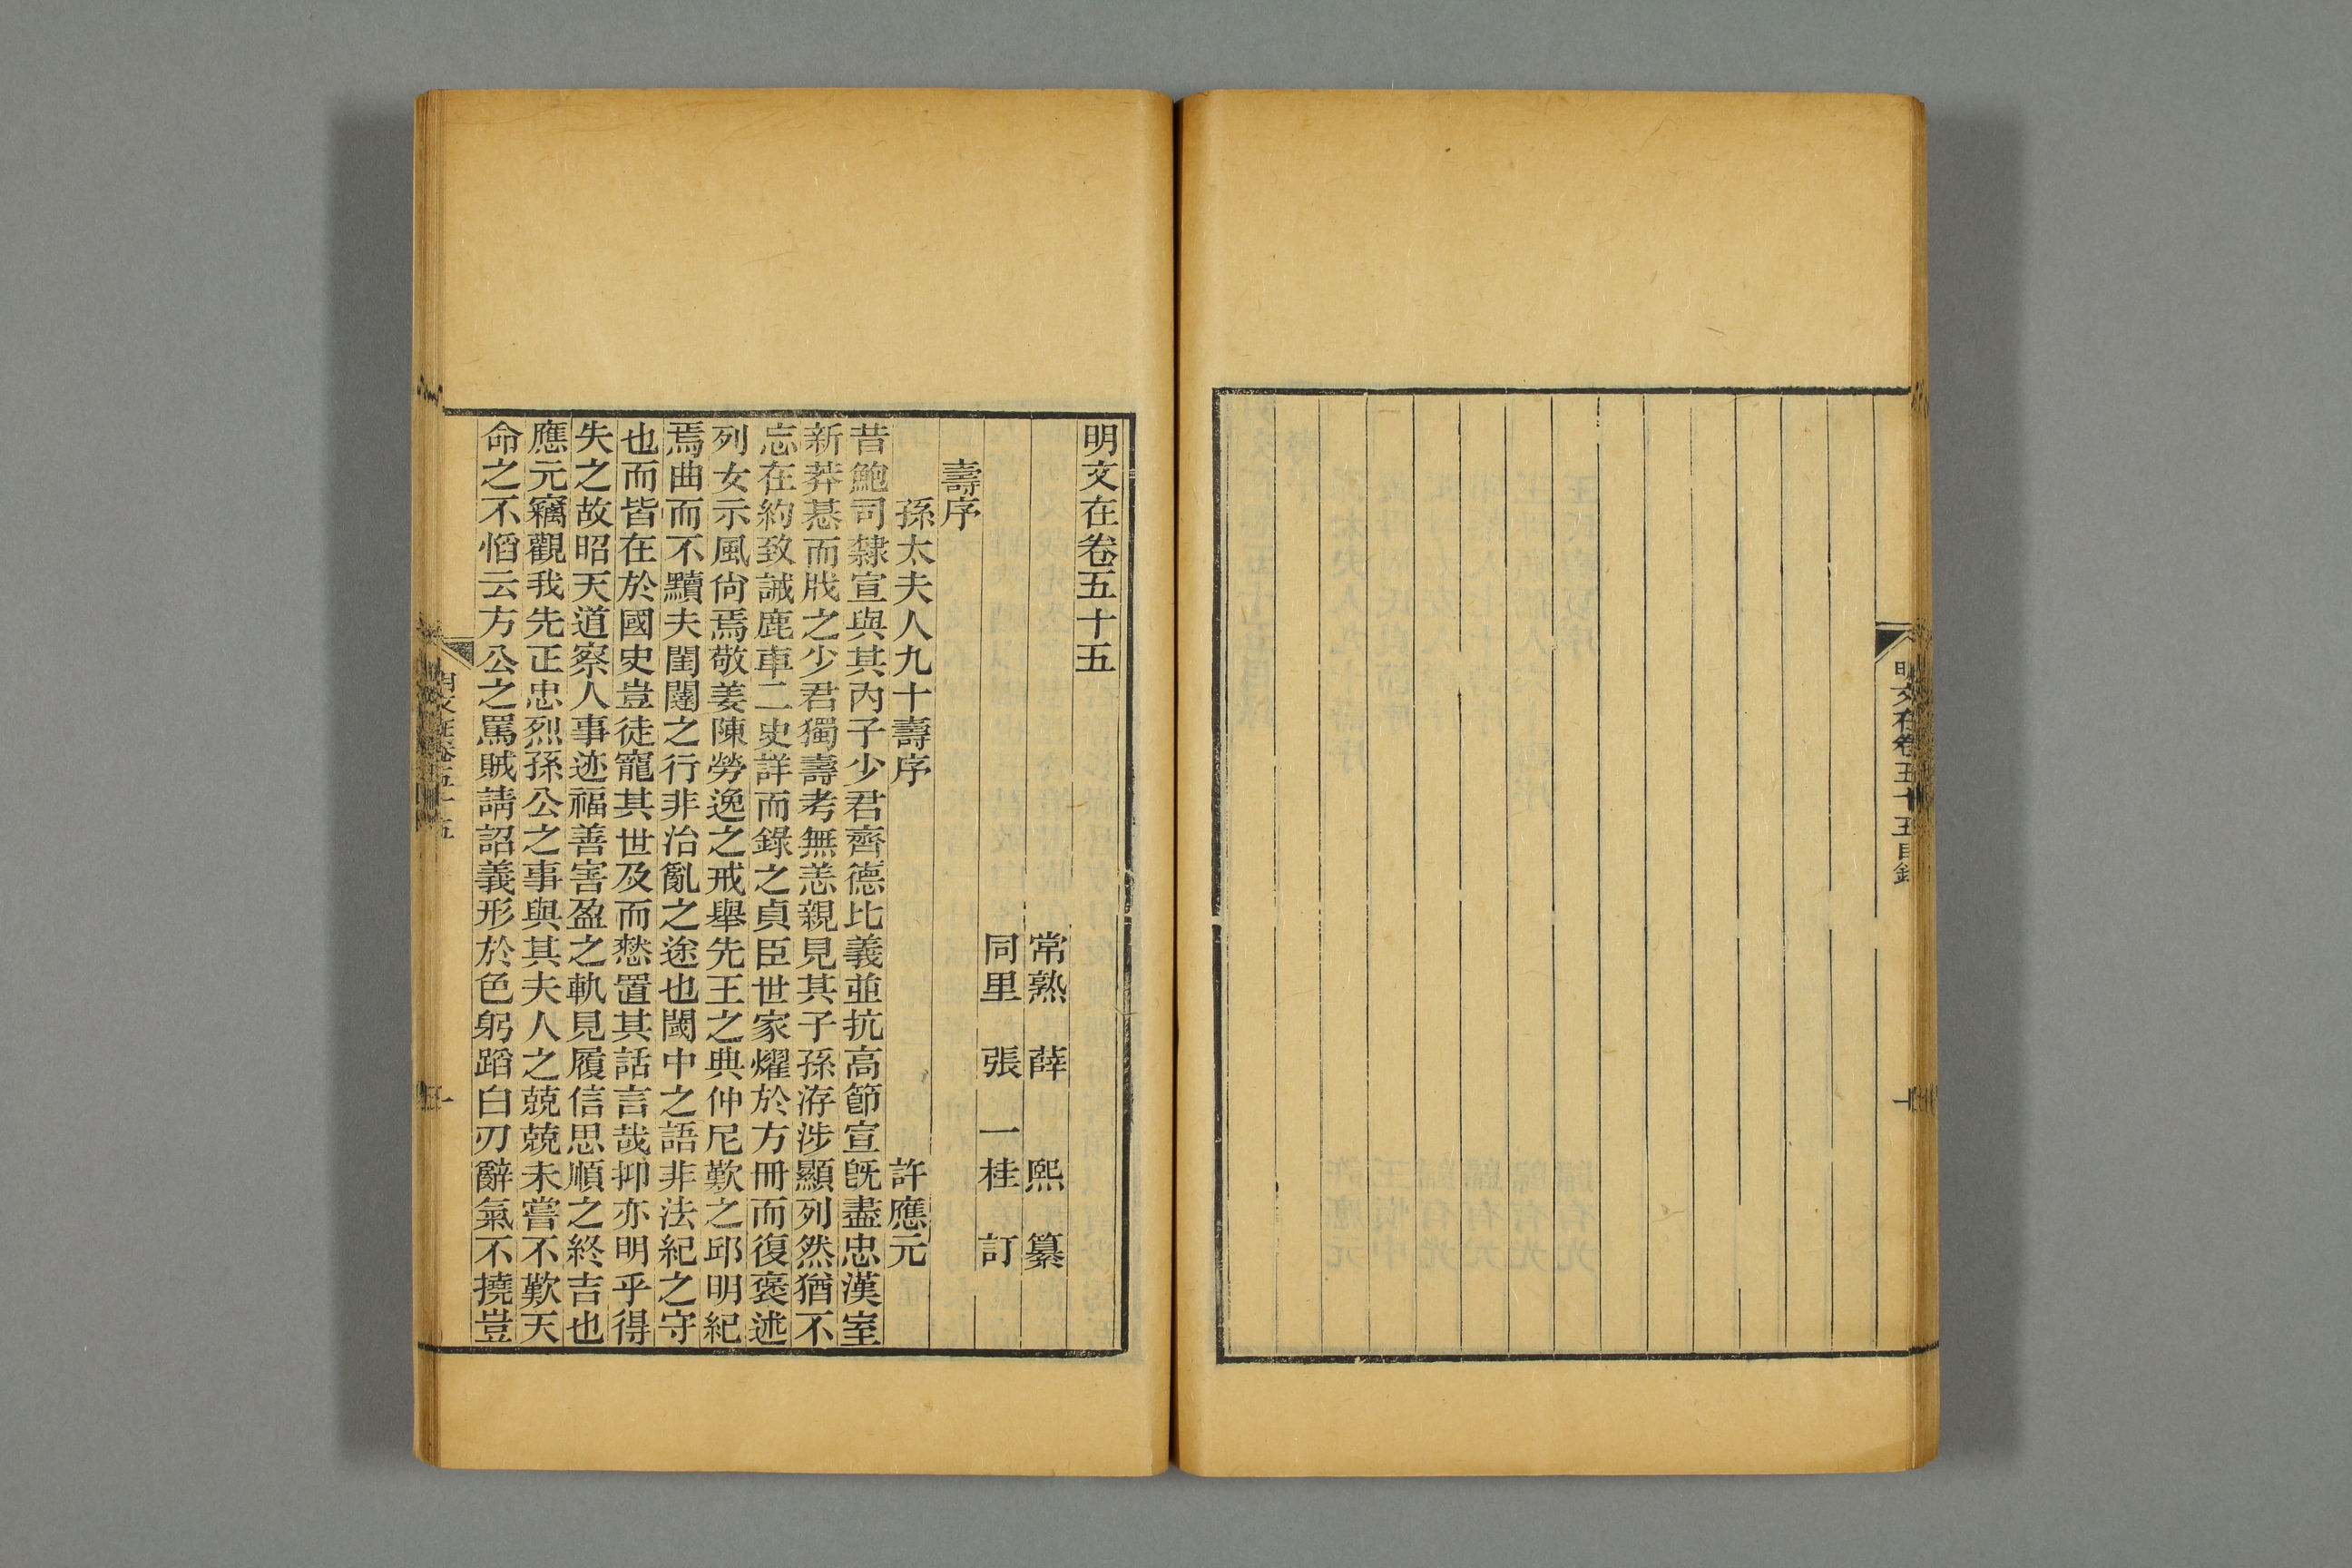 明文在卷五十五目錄
一
明文在卷五十五
常熟 薛 熙 纂
同里 張 一 桂 訂
壽序
孫太夫人九十壽序 許應元
昔鮑司隸宣與其內子少君齊德比義並抗高節宣旣盡忠漢室
新莽惎而戕之少君獨壽考無恙親見其子孫洊涉顯列然猶不
忘在約致誡鹿車二史詳而錄之貞臣世家燿於方冊而復褒述
列女示風尙焉敬姜陳勞逸之戒舉先王之典仲尼歎之邱明紀
焉曲而不黷夫閨闥之行非治亂之途也閾中之語非法紀之守
也而皆在於國史豈徒寵其世及而憖置其話言哉抑亦明乎得
失之故昭天道察人事迹福善害盈之軌見履信思順之終吉也
應元竊觀我先正忠烈孫公之事與其夫人之兢兢未嘗不歎天
命之不慆云方公之罵賊請詔義形於色躬蹈白刃辭氣不撓豈
明文在卷五十五
一